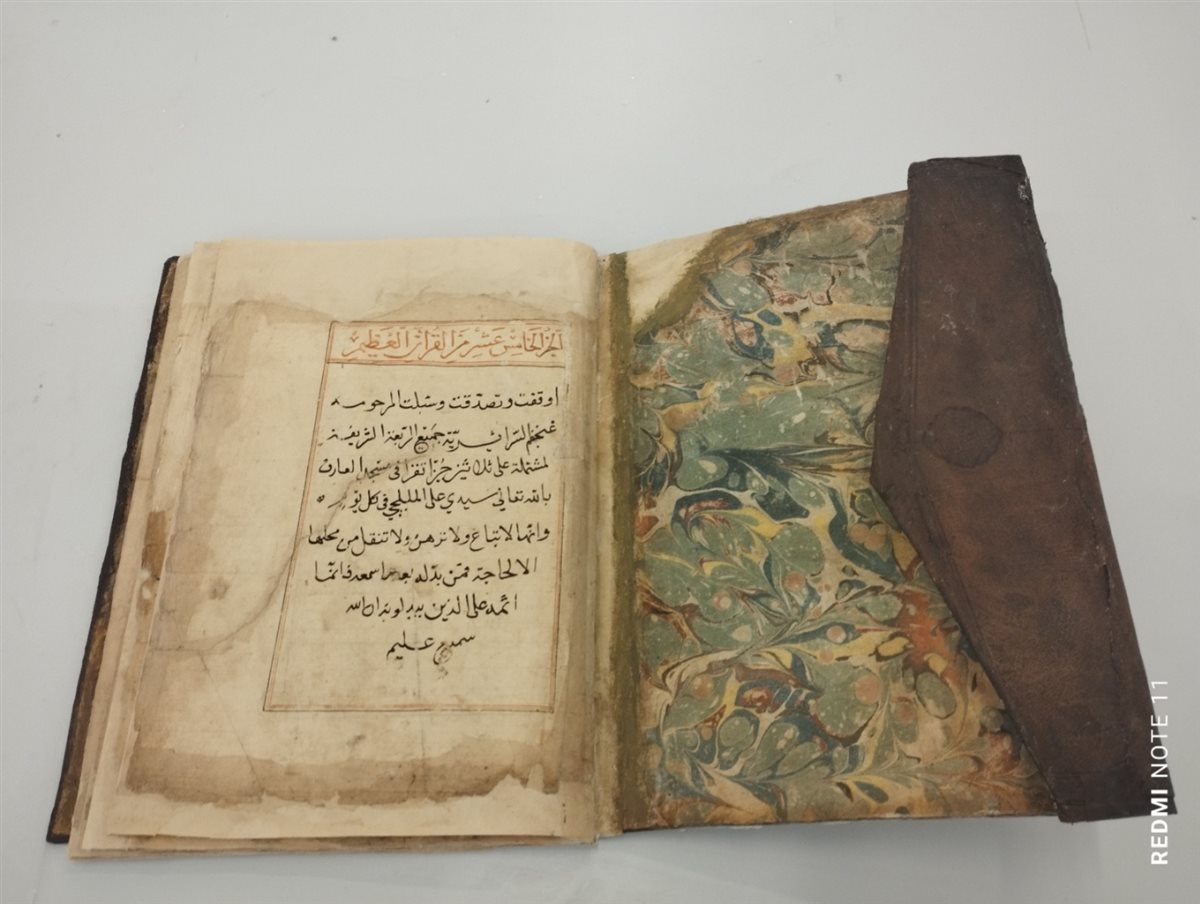 الجزء الخامس عشر من القرآن العظيم
اوقفت وتصدقت وسبلت المرحومه
جميع الربعة الشريفة
لمشتملة على ثلاثين جزا تقرا فى مسجد العارف
بالله تعالى سيدي على المليجي فى كل يوم
وانها لا تباع ولا ترهن ولا تنقل من محلها
الا لحاجة فمن بدله بعد ما سمعه فانما
اثمه على الذين يبدلونه ان الله
سميع عليم
REDMI NOTE 11